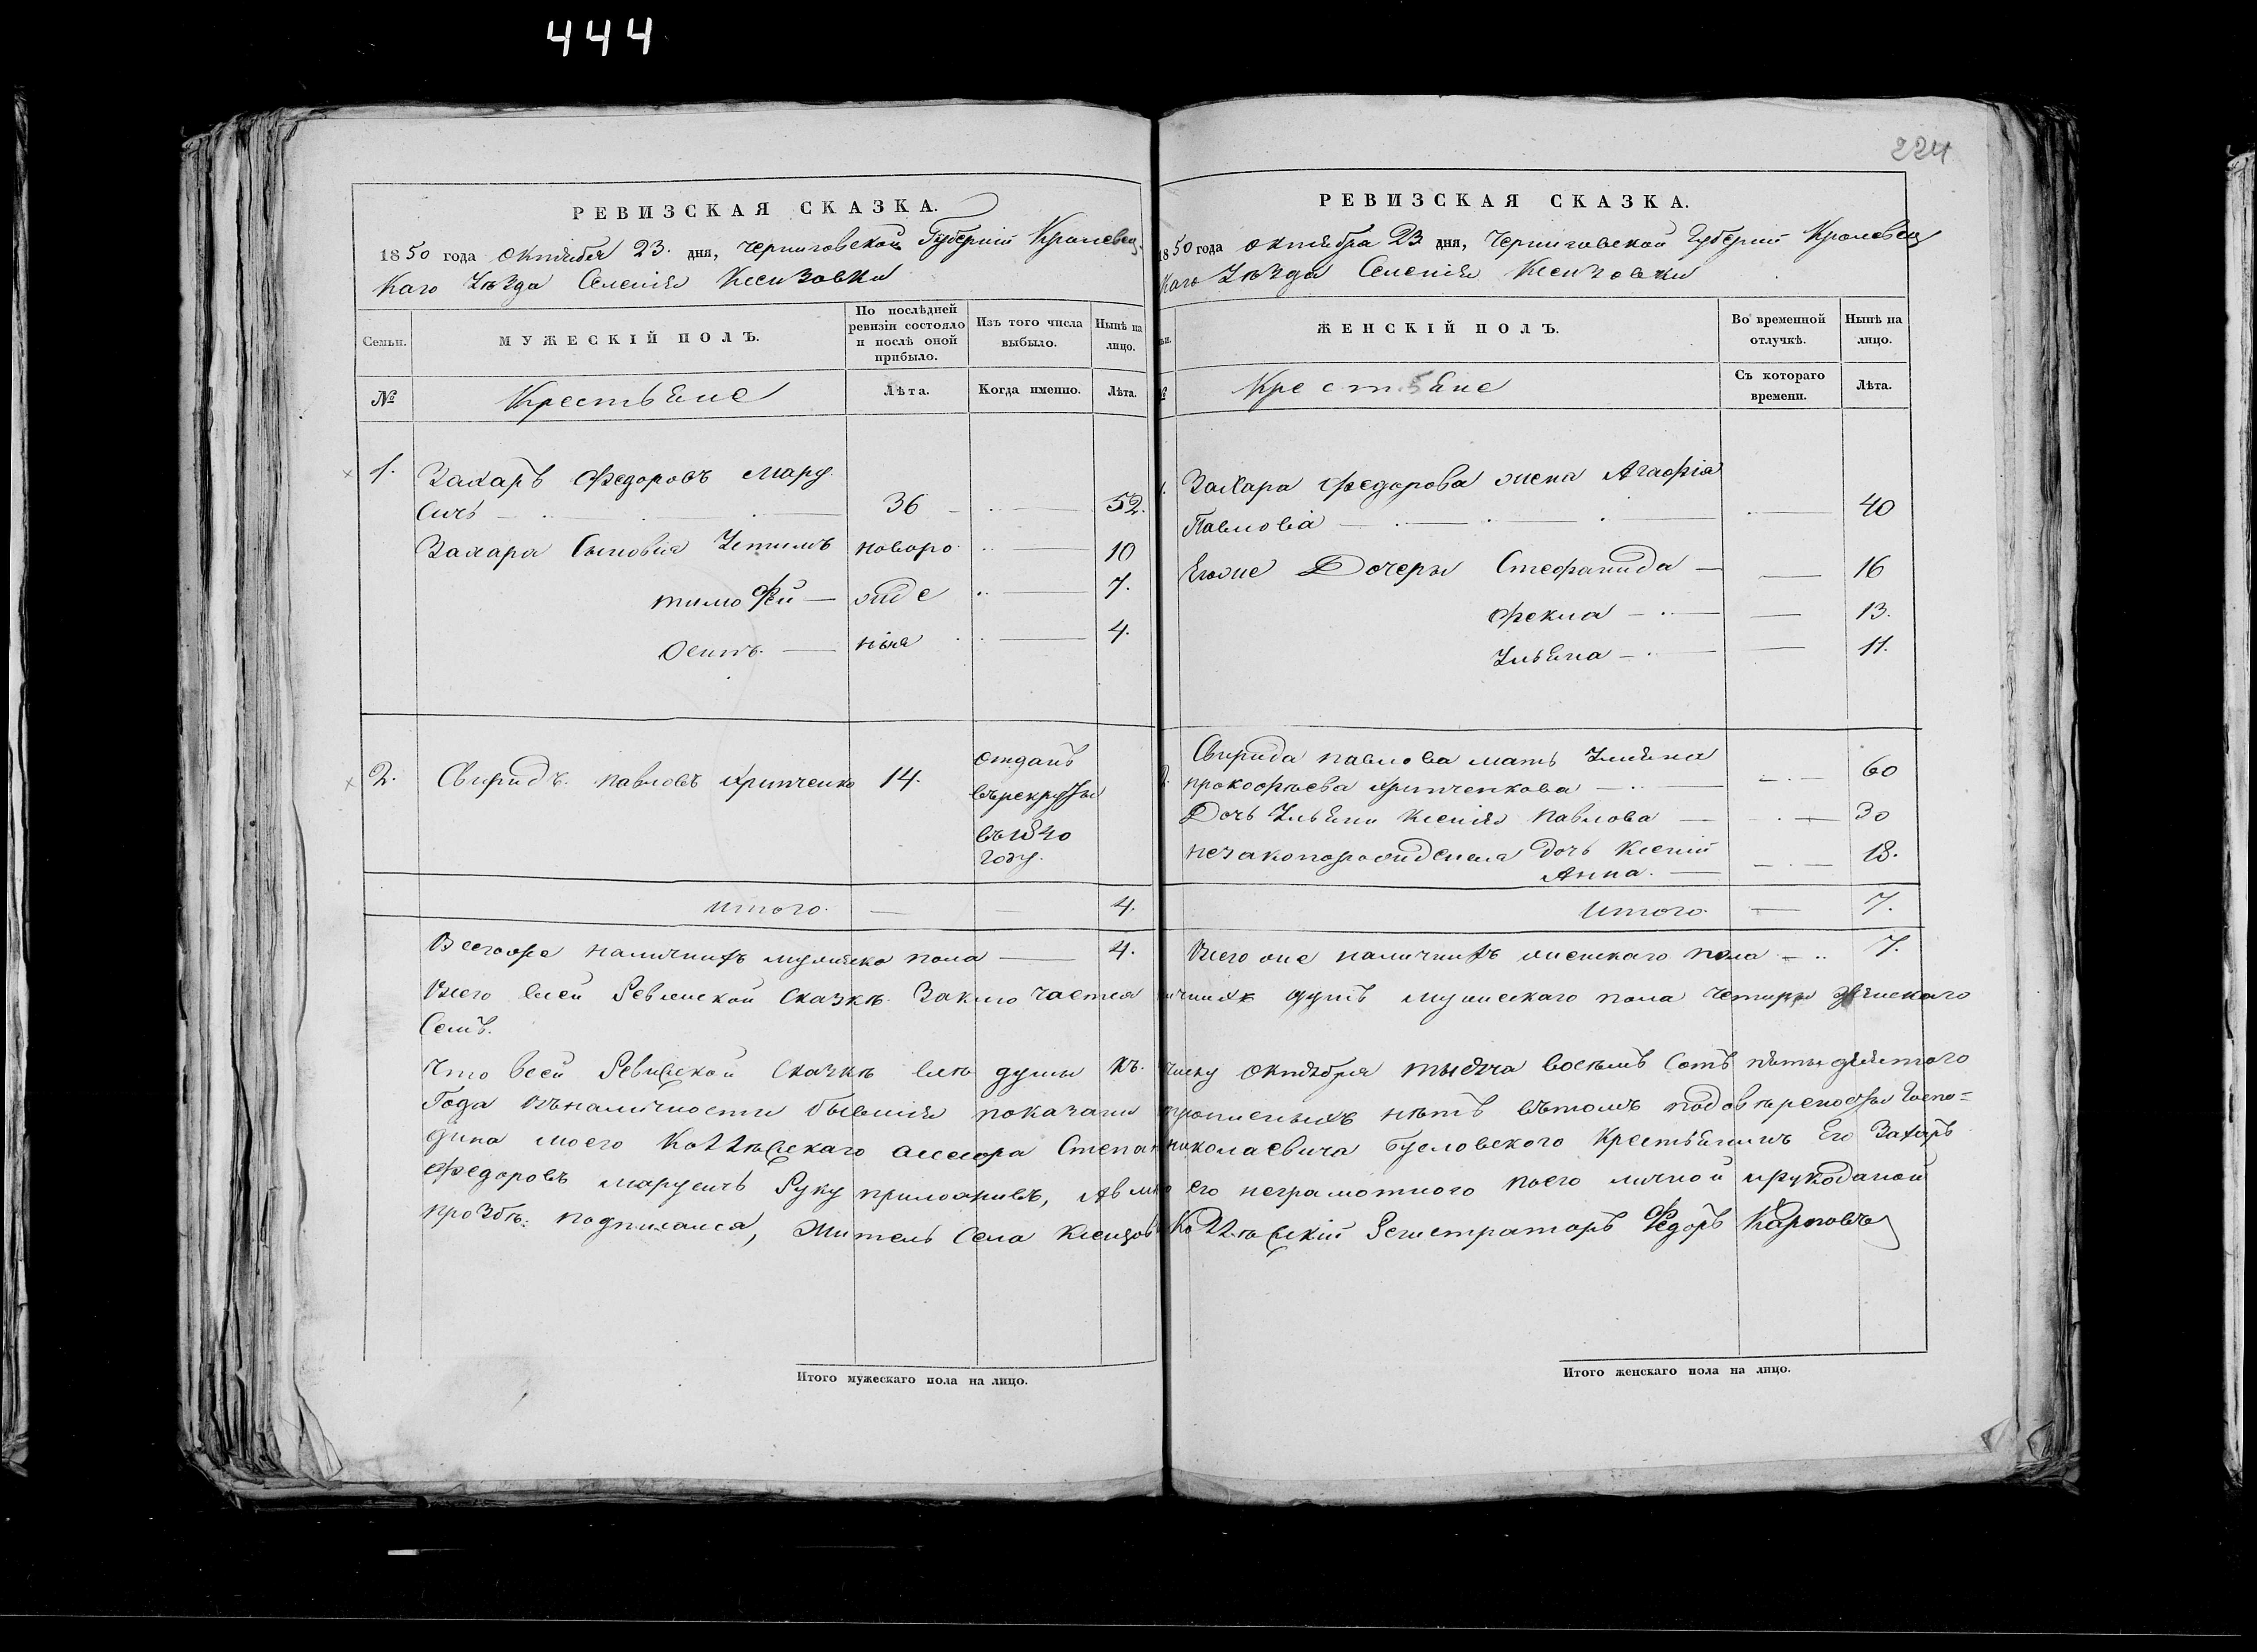 444
224
РЕВИЗСКАЯ СКАЗКА.
1850 года октября 23. дня, Черниговской Губерніи Кролевец
каго Уѣзда Селенія Ксензовки
Семьи. МУЖЕСКІЙ ПОЛЪ. По послѣдней ревизіи состояло и послѣ оной прибыло. Изъ того числа выбыло. Нынѣ на лицо.
№ Крестьяне Лѣта. Когда именно. Лѣта.
1. Захаръ Федоровъ Мару
сичъ 36 52.
Захара Сыновья новоро 10
тимофей жде 7.
Осипъ. ныя 4.
2. Свиридъ. павловъ Хрипченко 14. отданъ
въ рекруты
въ 1840
году.
итого. 4.
Всегоже наличныхъ мужеска пола 4.
РЕВИЗСКАЯ СКАЗКА.
1850 года октября 23 дня, Черниговской Губерніи Кролевец
каго Уѣзда Селенія Ксензовки
ЖЕНСКІЙ ПОЛЪ. Во временной отлучкѣ. Нынѣ на лицо.
№ Крестьяне Съ котораго времени. Лѣта.
1. Захара Федорова жена Агафія
Павлова 40
Егоже Дочеры Стефанида 16
Фекла 13.
Ульяна 11.
2. Свирида павлова мать Ульяна
прокофьева хрипченкова 60
Дочь Ульяны Ксенія Павлова 30
незаконорожденная дочь Ксеніи
Анна. 18.
Итого 7.
Всего же наличныхъ женскаго пола 7.
Всего въсей Ревизской Сказкѣ. Заключается наличныхъ душъ мужескаго пола четыры женскаго
Семъ.
Что въсей Ревиской Сказкѣ всѣ душы къ. числу октября тысяча восемъ сотъ пятьидесятого
Года въналичности бывшія показаны прописныхъ нѣтъ вътомъ подовѣреносты Госпо=
дина моего Коллѣжскаго асесора Степана николаевича Бусловского Крестьянинъ Его Захаръ
Федоровъ марусичъ Руку приложилъ, а вмѣсто его неграмотного поего личной ирукоданой
прозбѣ: подписался, Житель Села Ксензовки Коллѣжскій Регистраторъ Федоръ Карповъ
Итого мужескаго пола на лицо.
Итого женскаго пола на лицо.